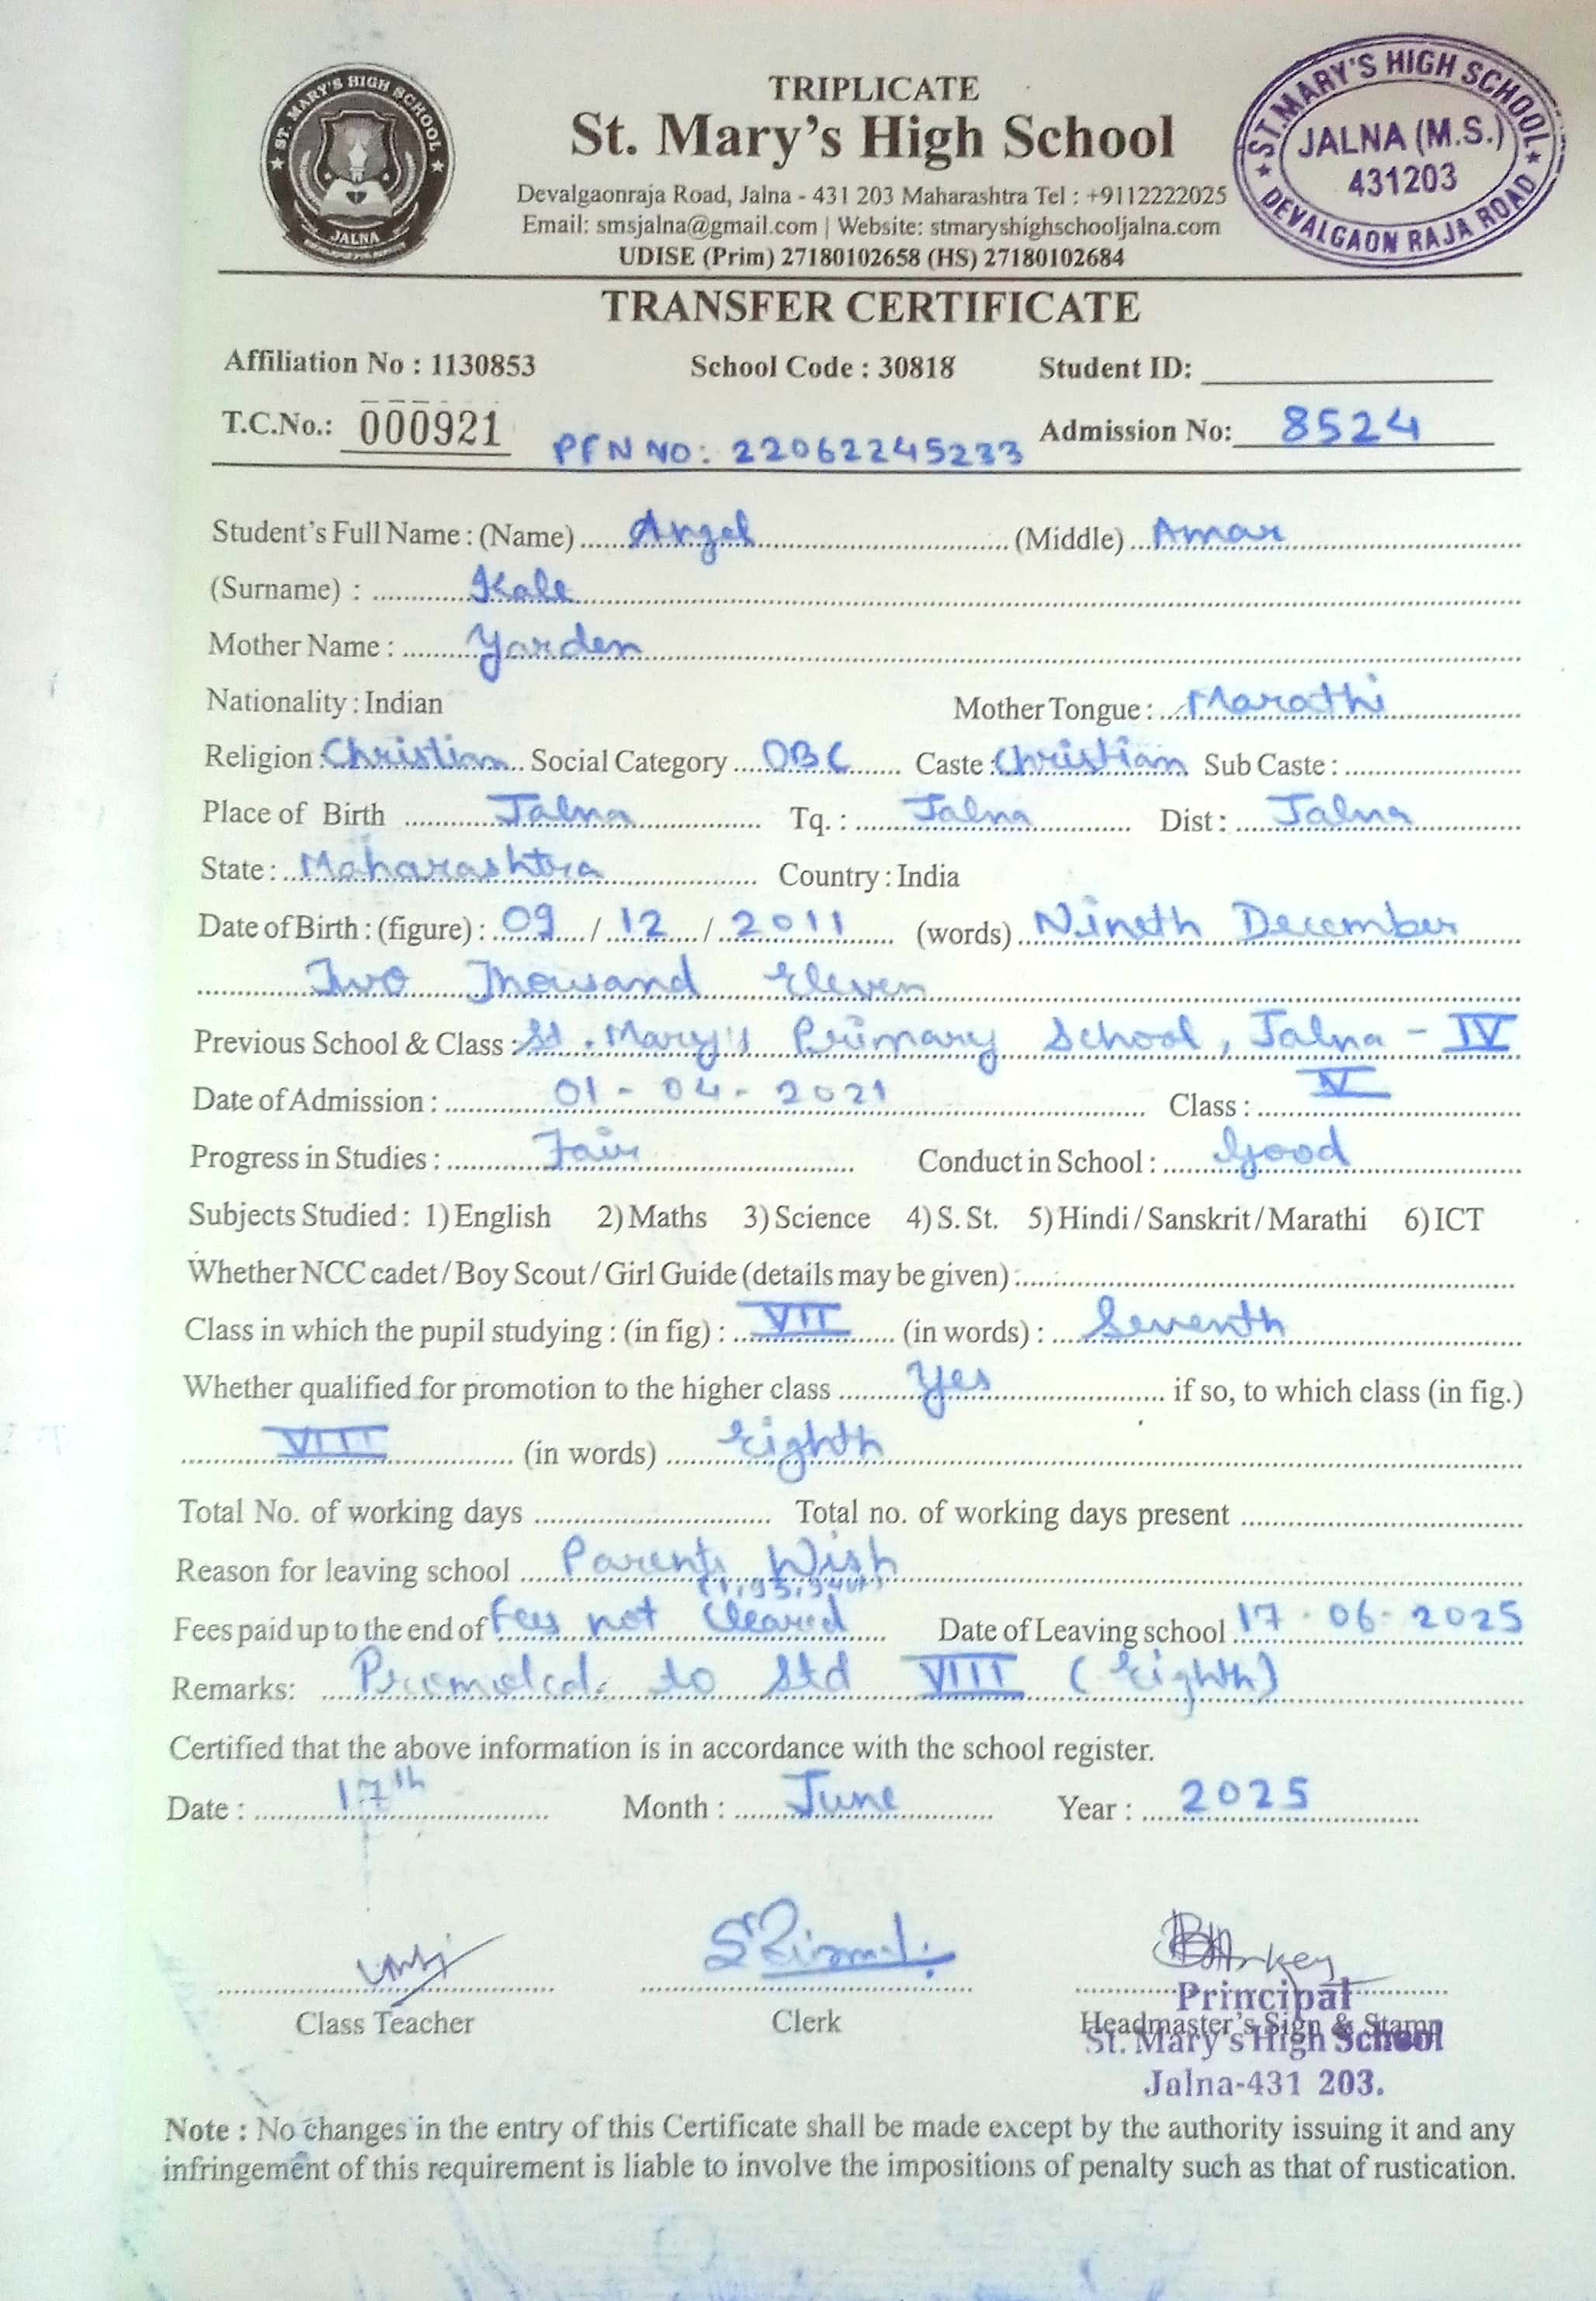 TRIPLICATE
St. Mary's High School
Devalgaonraja Road, Jalna - 431 203 Maharashtra Tel : +9112222025
Email: smsjalna@gmail.com | Website: stmaryshighschooljalna.com
UDISE (Prim) 27180102658 (HS) 27180102684
ST. MARY'S HIGH SCHOOL
JALNA
ST. MARY'S HIGH SCHOOL
JALNA (M.S.)
431203
DEVALGAON RAJA ROAD
TRANSFER CERTIFICATE
Affiliation No : 1130853 School Code : 30818 Student ID:
T.C.No.: 000921 PEN NO: 22062245233 Admission No: 8524
Student's Full Name : (Name) Angel (Middle) Amar
(Surname) : Kale
Mother Name : Yarden
Nationality : Indian Mother Tongue : Marathi
Religion : Christian Social Category OBC Caste : Christian Sub Caste :
Place of Birth Jalna Tq. : Jalna Dist : Jalna
State : Maharashtra Country : India
Date of Birth : (figure) : 09 / 12 / 2011 (words) Nineth December
Two Thousand Eleven
Previous School & Class : St. Mary's Primary School, Jalna - IV
Date of Admission : 01 - 04 - 2021 Class : V
Progress in Studies : Fair Conduct in School : Good
Subjects Studied : 1) English 2) Maths 3) Science 4) S. St. 5) Hindi / Sanskrit / Marathi 6) ICT
Whether NCC cadet / Boy Scout / Girl Guide (details may be given) :
Class in which the pupil studying : (in fig) : VII (in words) : Seventh
Whether qualified for promotion to the higher class Yes if so, to which class (in fig.)
VIII (in words) Eighth
Total No. of working days Total no. of working days present
Reason for leaving school Parents Wish
Fees paid up to the end of Fees not Cleared Date of Leaving school 17 - 06 - 2025
Remarks: Promoted to Std VIII (Eighth)
Certified that the above information is in accordance with the school register.
Date : 17th Month : June Year : 2025
Class Teacher Clerk Headmaster's Sign & Stamp
Principal
St. Mary's High School
Jalna-431 203.
Note : No changes in the entry of this Certificate shall be made except by the authority issuing it and any
infringement of this requirement is liable to involve the impositions of penalty such as that of rustication.